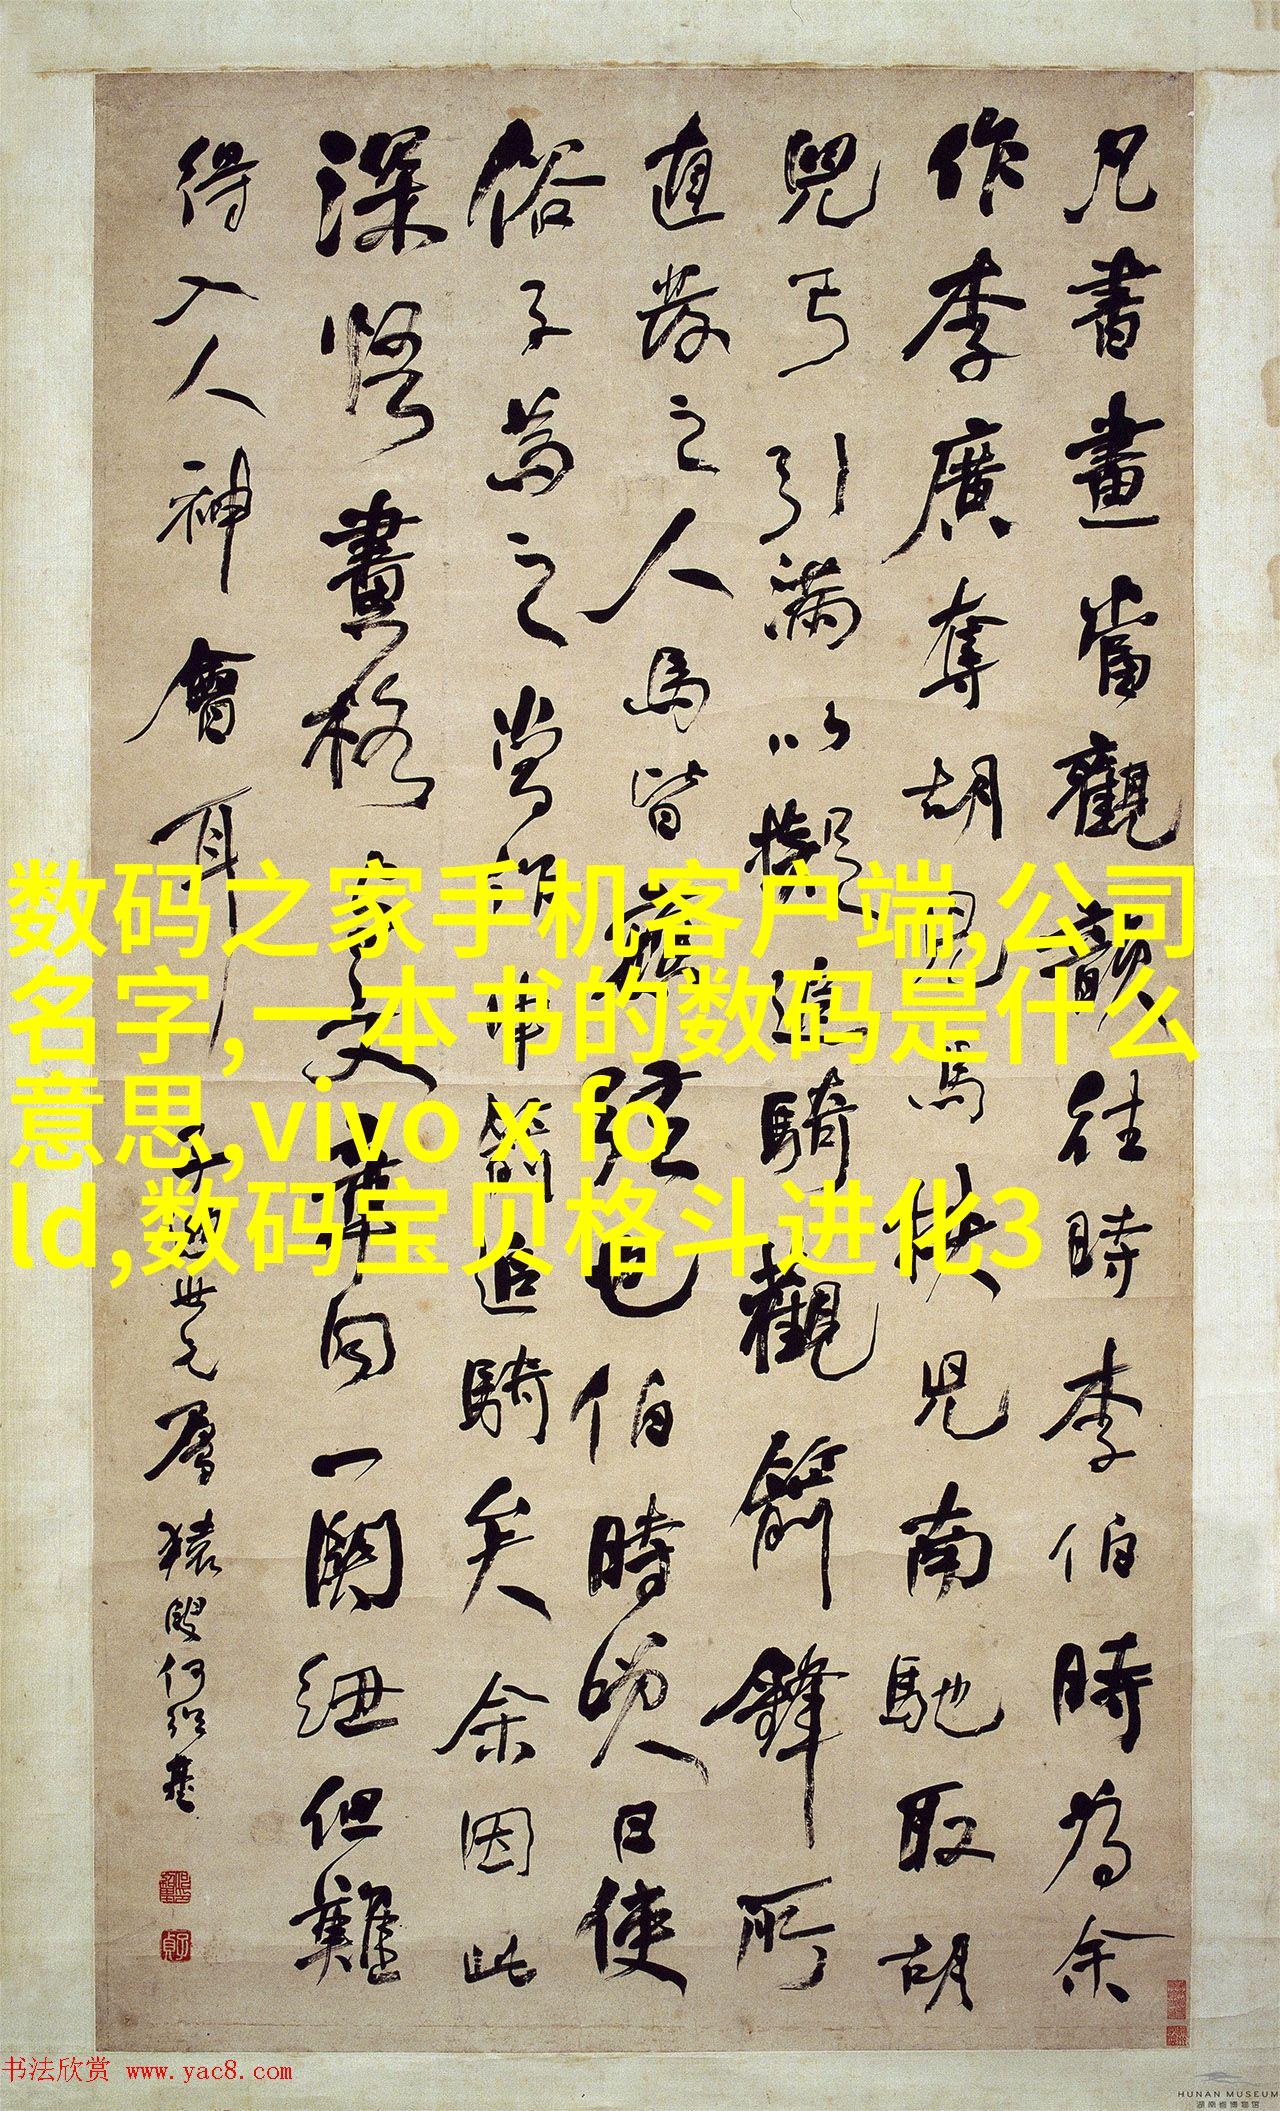 凡書畫當觀韻往時李伯時為余
作李廣奪胡兒馬挾兒南馳取胡
兒弓引滿以擬追騎觀箭鋒所
直發之人馬皆應弦也伯時笑曰使
俗子為之當作中箭追騎矣余因此
深悟畫格與文章同一關紐但難
得入人神會耳
世元屬 猿叟何紹基
数码之家手机客户端,公司
名字,一本书的数码是什么
意思,vivo x fo
ld,数码宝贝格斗进化3
书法欣赏 www.yac8.com
HUNAN MUSEUM
湖南省博物馆